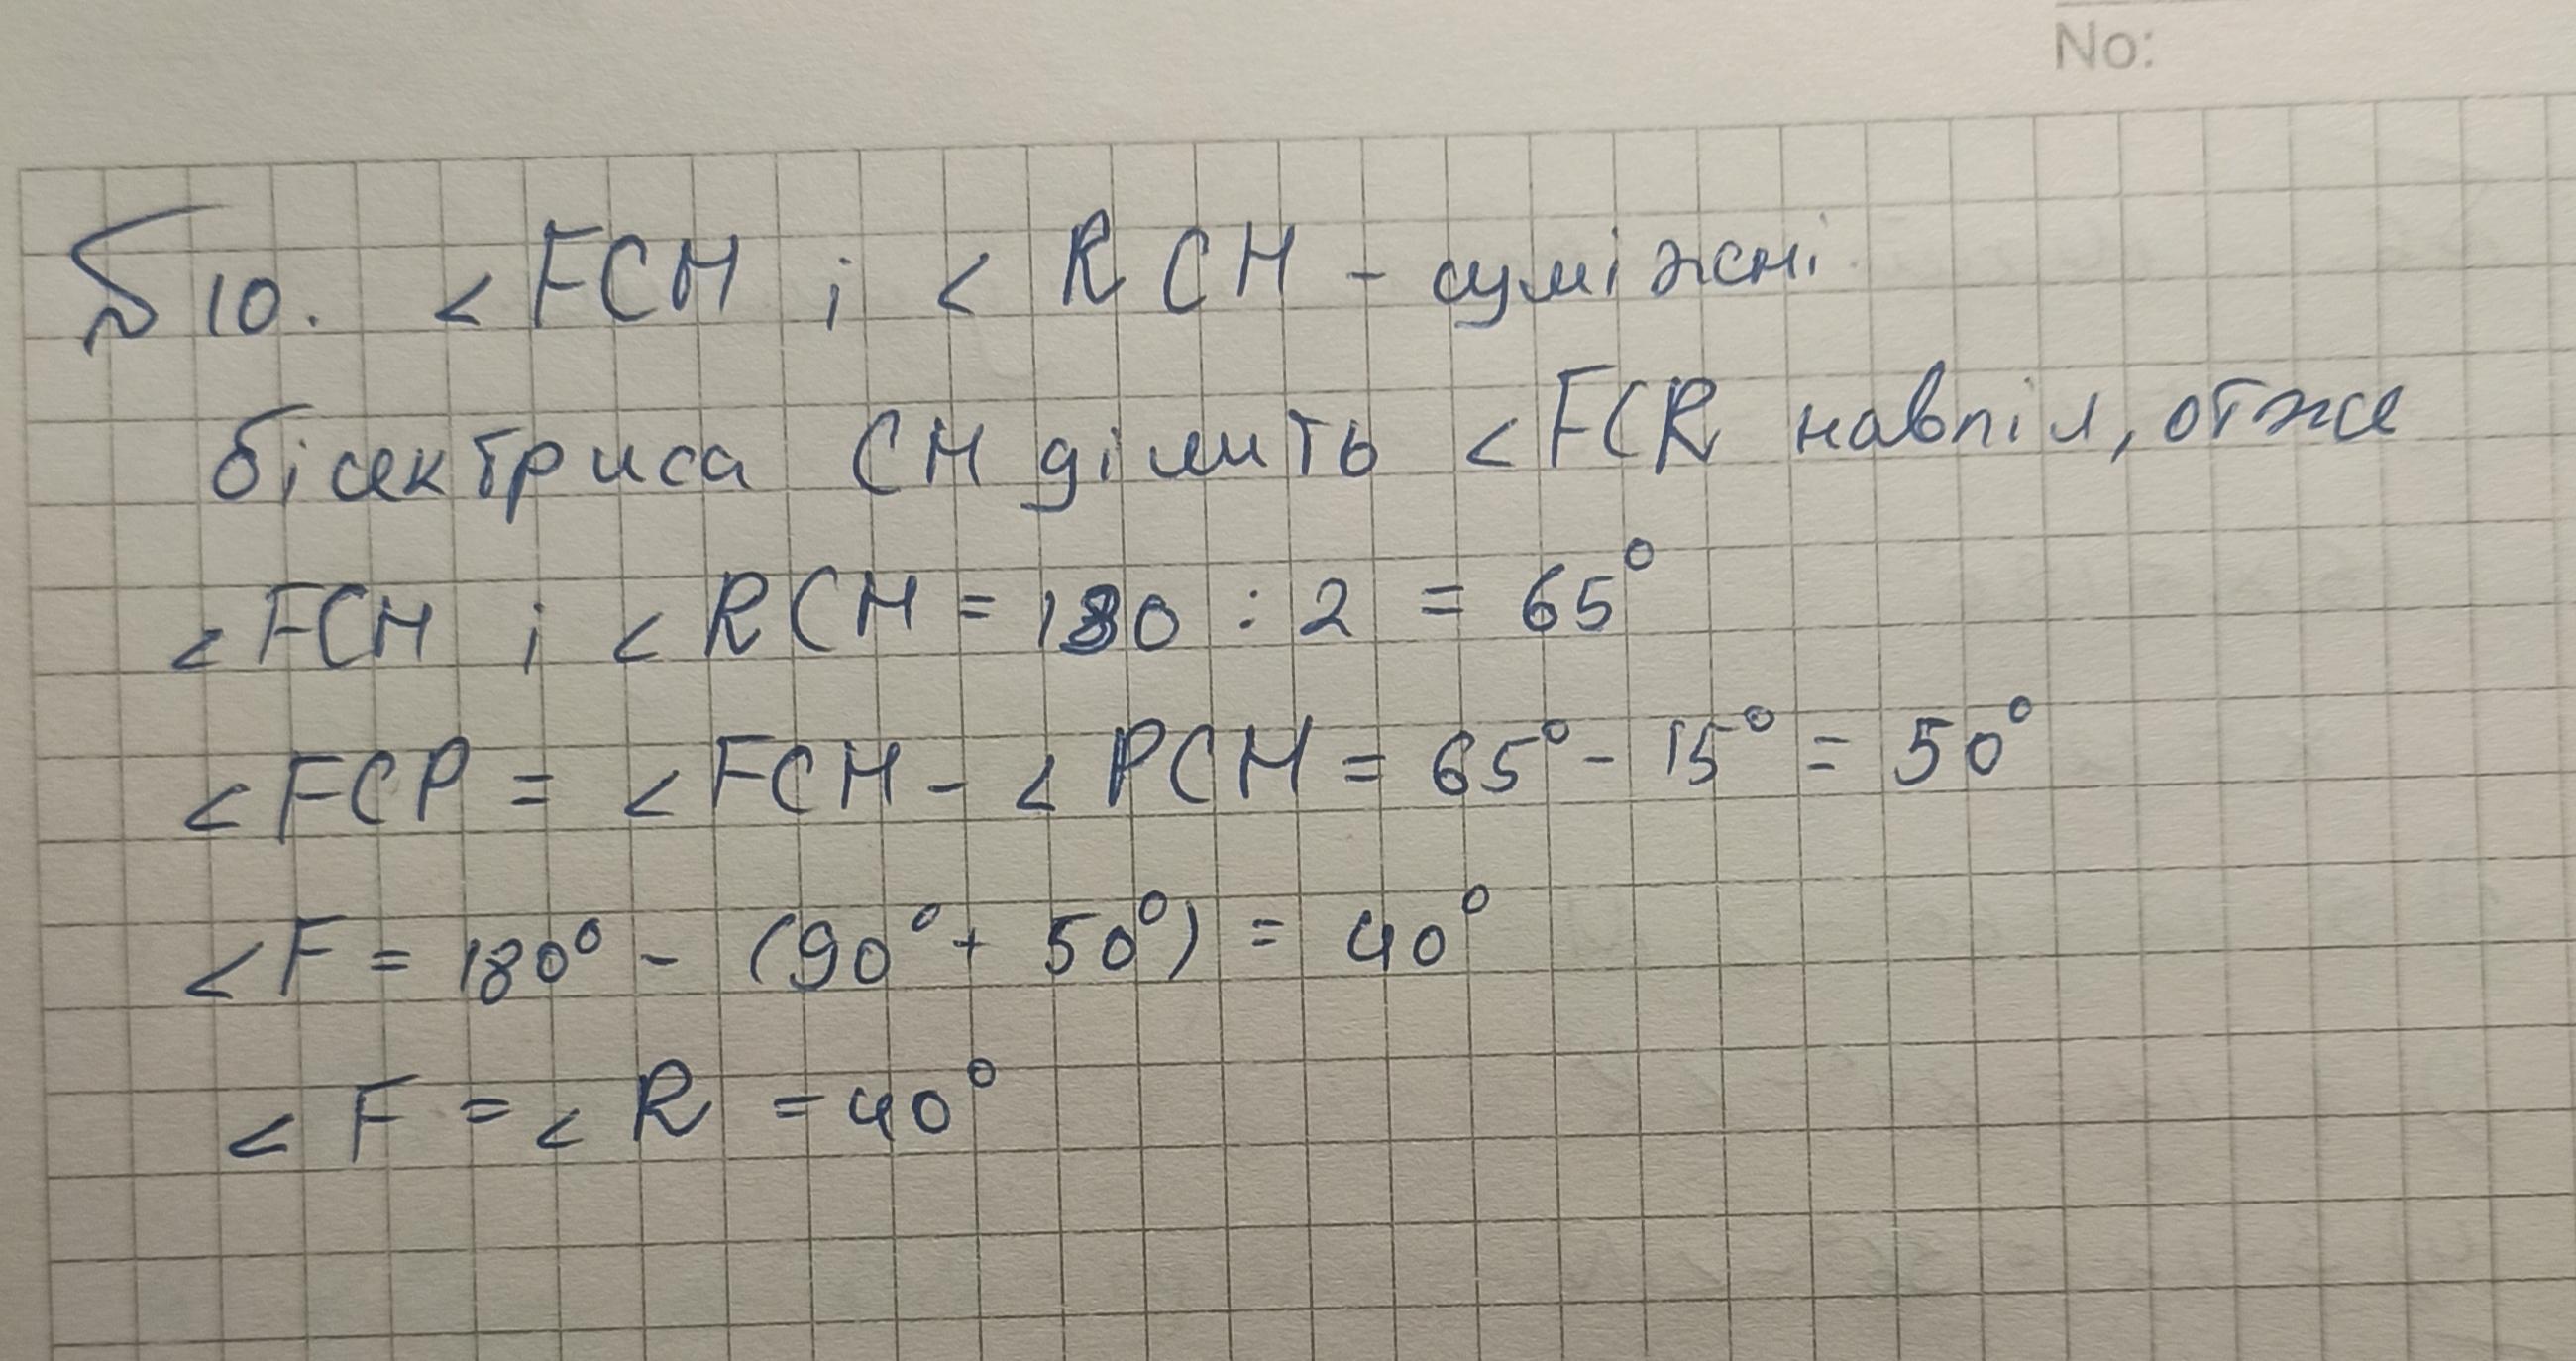 No:
№ 10. <FCH і < RCH - суміжні
бісектриса CH ділить <FCR навпіл, отже
<FCH і <RCH = 130 : 2 = 65°
<FCP = <FCH - <PCH = 65° - 15° = 50°
<F = 180° - (90° + 50°) = 40°
<F = <R = 40°